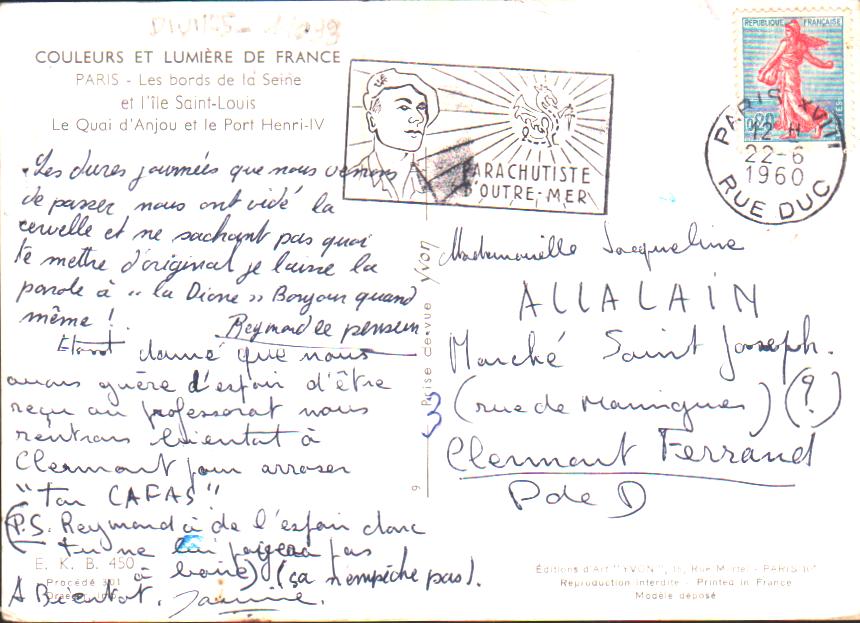 COULEURS ET LUMIÈRE DE FRANCE
PARIS - Les bords de la Seine
et l'île Saint-Louis
Le Quai d'Anjou et le Port Henri-IV
Les dures journées que nous venons
de passer nous ont vidé la
cervelle et ne sachant pas quoi
te mettre d'original je laisse la
parole à "la Diane" Bonjour quand
même !
Reymond le penseur
Etant donné que nous
avons guère d'espoir d'être
reçu au professorat nous
rentrons bientôt à
Clermont pour arroser
"ton CAFAS"
(P.S. Reymond à de l'espoir donc
tu ne lui payeras pas
à boire) (ça n'empêche pas).
A Bientot. Janine.
E. K. B. 450
Procédé 301
Draeger Imp.
Prise de vue Yvon
9
3
PARACHUTISTE
D'OUTRE-MER
REPUBLIQUE FRANÇAISE
POSTES
0,20
PARIS XVIII
12 H
22-6
1960
RUE DUC
Mademoiselle Jacqueline
ALLALAIN
Marché Saint Joseph.
(rue de Maringues) (?)
Clermont Ferrand
P de D
Éditions d'Art "YVON", 15, Rue Martel - PARIS 10e
Reproduction interdite - Printed in France
Modèle déposé